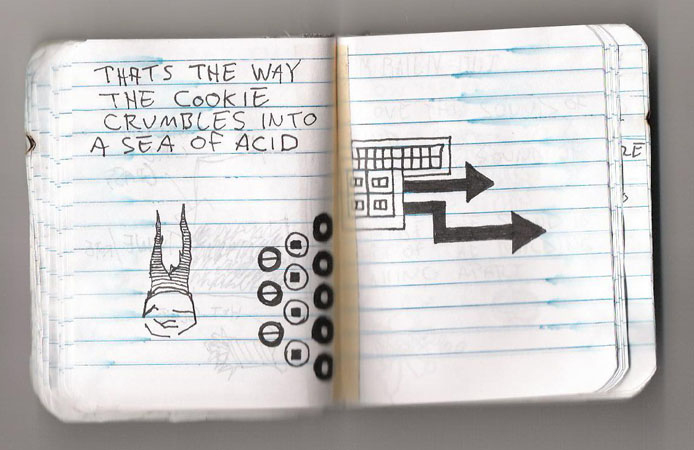 THATS THE WAY
THE COOKIE
CRUMBLES INTO
A SEA OF ACID